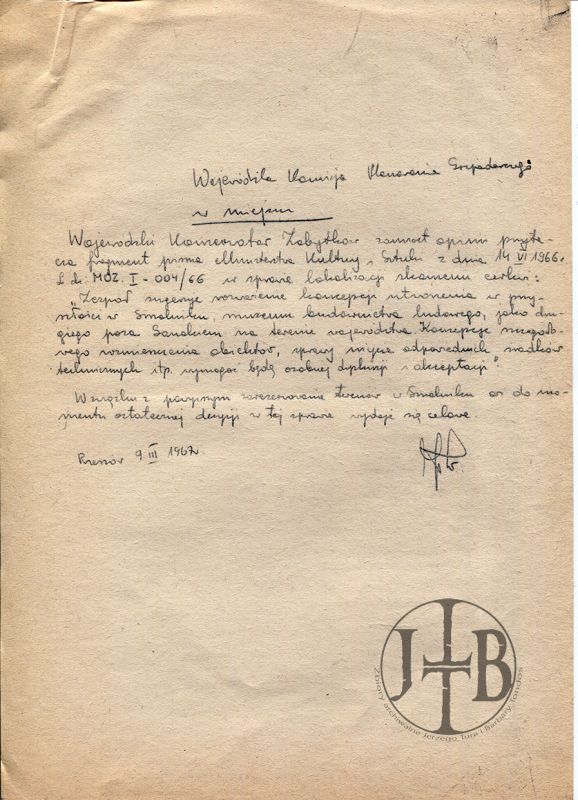 Wojewódzka Komisja Planowania Gospodarczego
w miejscu
Wojewódzki Konserwator Zabytków zamiast opinii przyta-
cza fragment pisma Ministerstwa Kultury i Sztuki z dnia 14 VI 1966 r.
L.dz. MOZ. I - 004/66 w sprawie lokalizacji skansenu cerkwi:
"Zespół sugeruje rozważenie koncepcji utworzenia w przy-
szłości w Smolniku, muzeum budownictwa ludowego, jako dru-
giego poza Sanokiem na terenie województwa. Koncepcje szczegóło-
wego rozmieszczenia obiektów, sprawy użycia odpowiednich środków
technicznych itp. wymagać będą osobnej dyskusji i akceptacji".
W związku z powyższym zarezerwowanie terenów w Smolniku aż do mo-
mentu ostatecznej decyzji w tej sprawie wydaje się celowe.
Rzeszów 9 III 1967 r.
J B
Zbiory archiwalne Jerzego Tura i Barbary Tondos